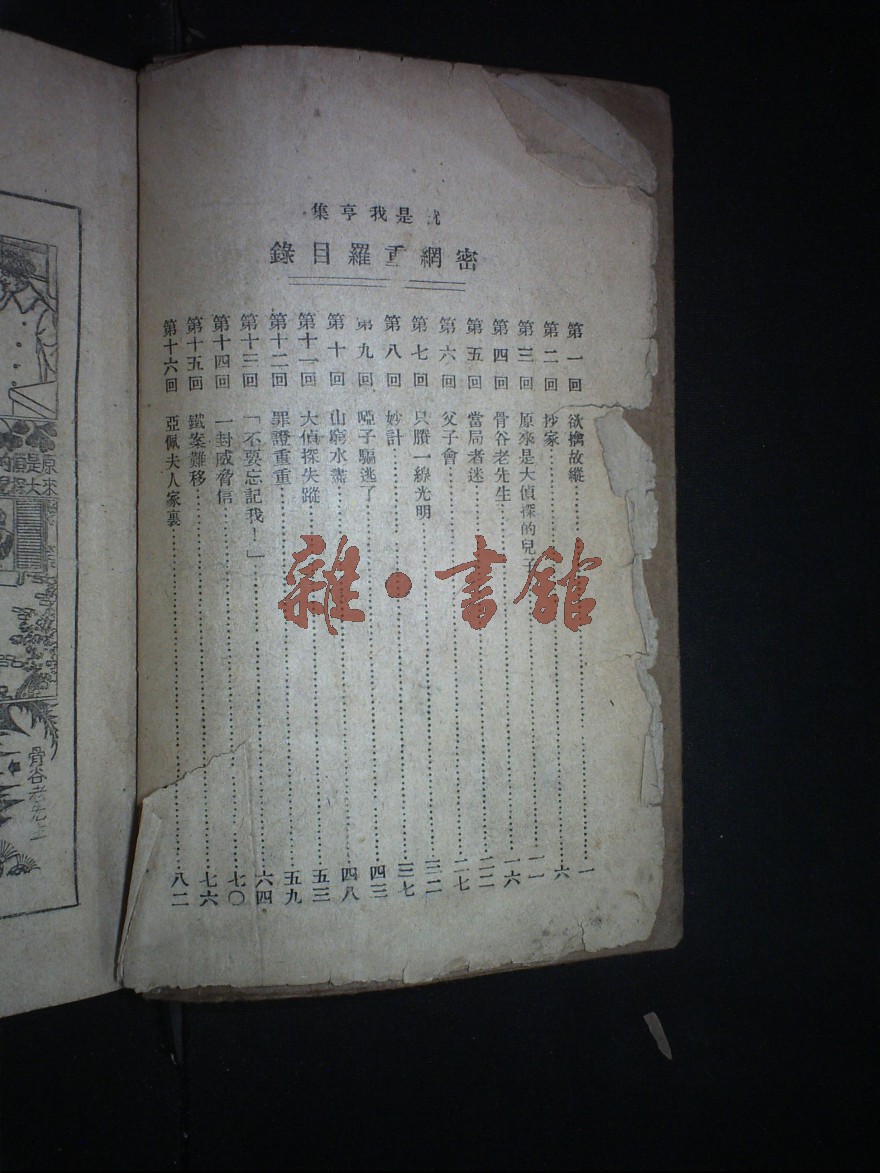 就是我亨集
密網重羅目錄
第一回 欲擒故縱……一
第二回 抄家……六
第三回 原來是大偵探的兒子……一一
第四回 骨谷老先生……一六
第五回 當局者迷……二二
第六回 父子會……二七
第七回 只賸一線光明……三二
第八回 妙計……三七
第九回 啞子騙逃了……四三
第十回 山窮水盡……四八
第十一回 大偵探失蹤……五三
第十二回 罪證重重……五九
第十三回 「不要忘記我！」……六四
第十四回 一封威脅信……七〇
第十五回 鐵案難移……七六
第十六回 亞佩夫人家裏……八二
雜·書館
原來
是大
偵探
骨谷老先生